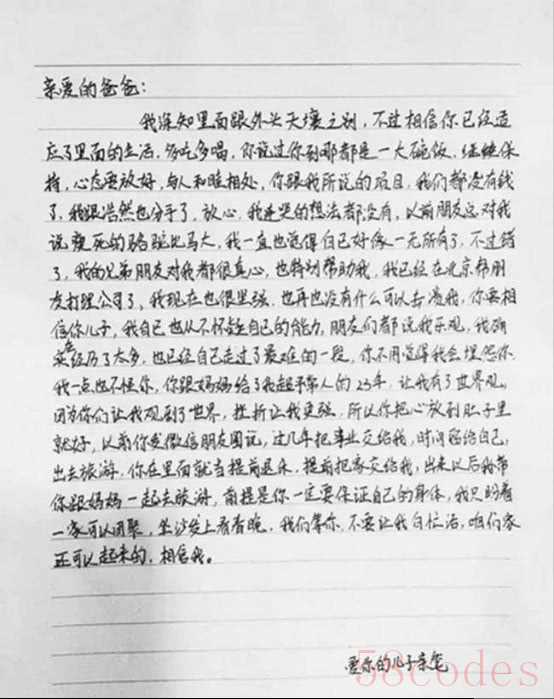 亲爱的爸爸:
我深知里面跟外头天壤之别,不过相信你已经适
应了里面的生活,多吃多喝,你说过你到哪都是一大碗饭,继续保
持,心态要放好,与人和睦相处,你跟我所说的项目,我们都没有钱
了,我跟浩然也分手了,放心,我连哭的想法都没有,以前朋友总对我
说瘦死的骆驼比马大,我一直也觉得自己好像一无所有了,不过错
了,我的兄弟朋友对我都很真心,也特别帮助我,我已经在北京帮朋
友打理公司了,我现在也很坚强,也再也没有什么可以击溃我,你要相
信你儿子,我自己也从不怀疑自己的能力,朋友们都说我乐观,我确
实经历了太多,也已经自己走过了最难的一段,你不用觉得我会埋怨你
我一点也不怪你,你跟妈妈给了我超乎常人的25年,让我有了世界观,
因为你们让我观到了世界,挫折让我更强,所以你把心放到肚子里
就好,以前你发微信朋友圈说,过几年把事业交给我,时间留给自己,
出去旅游,你在里面就当提前退休,提前把家交给我,出来以后我带
你跟妈妈一起去旅游,前提是你一定要保证自己的身体,我只盼着
一家可以团聚,坐沙发上看春晚,我们等你,不要让我白忙活,咱们家
还可以起来的,相信我。
爱你的儿子亲笔
58codes